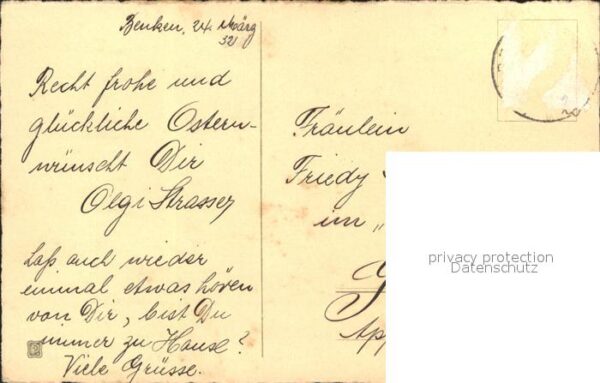 Benken, 24. März
32
Recht frohe und
glückliche Ostern
wünscht Dir
Olgi Strasser
Laß auch wieder
einmal etwas hören
von Dir, bist Du
immer zu Hause?
Viele Grüsse.
Fräulein
Friedy
im "
App
privacy protection
Datenschutz